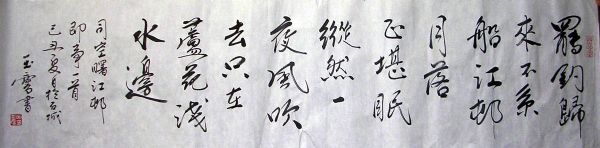 罷釣歸
來不系
船江邨
月落
正堪眠
縱然一
夜風吹
去只在
蘆花淺
水邊
司空曙江邨
即事一首
己丑夏月於石城
玉書